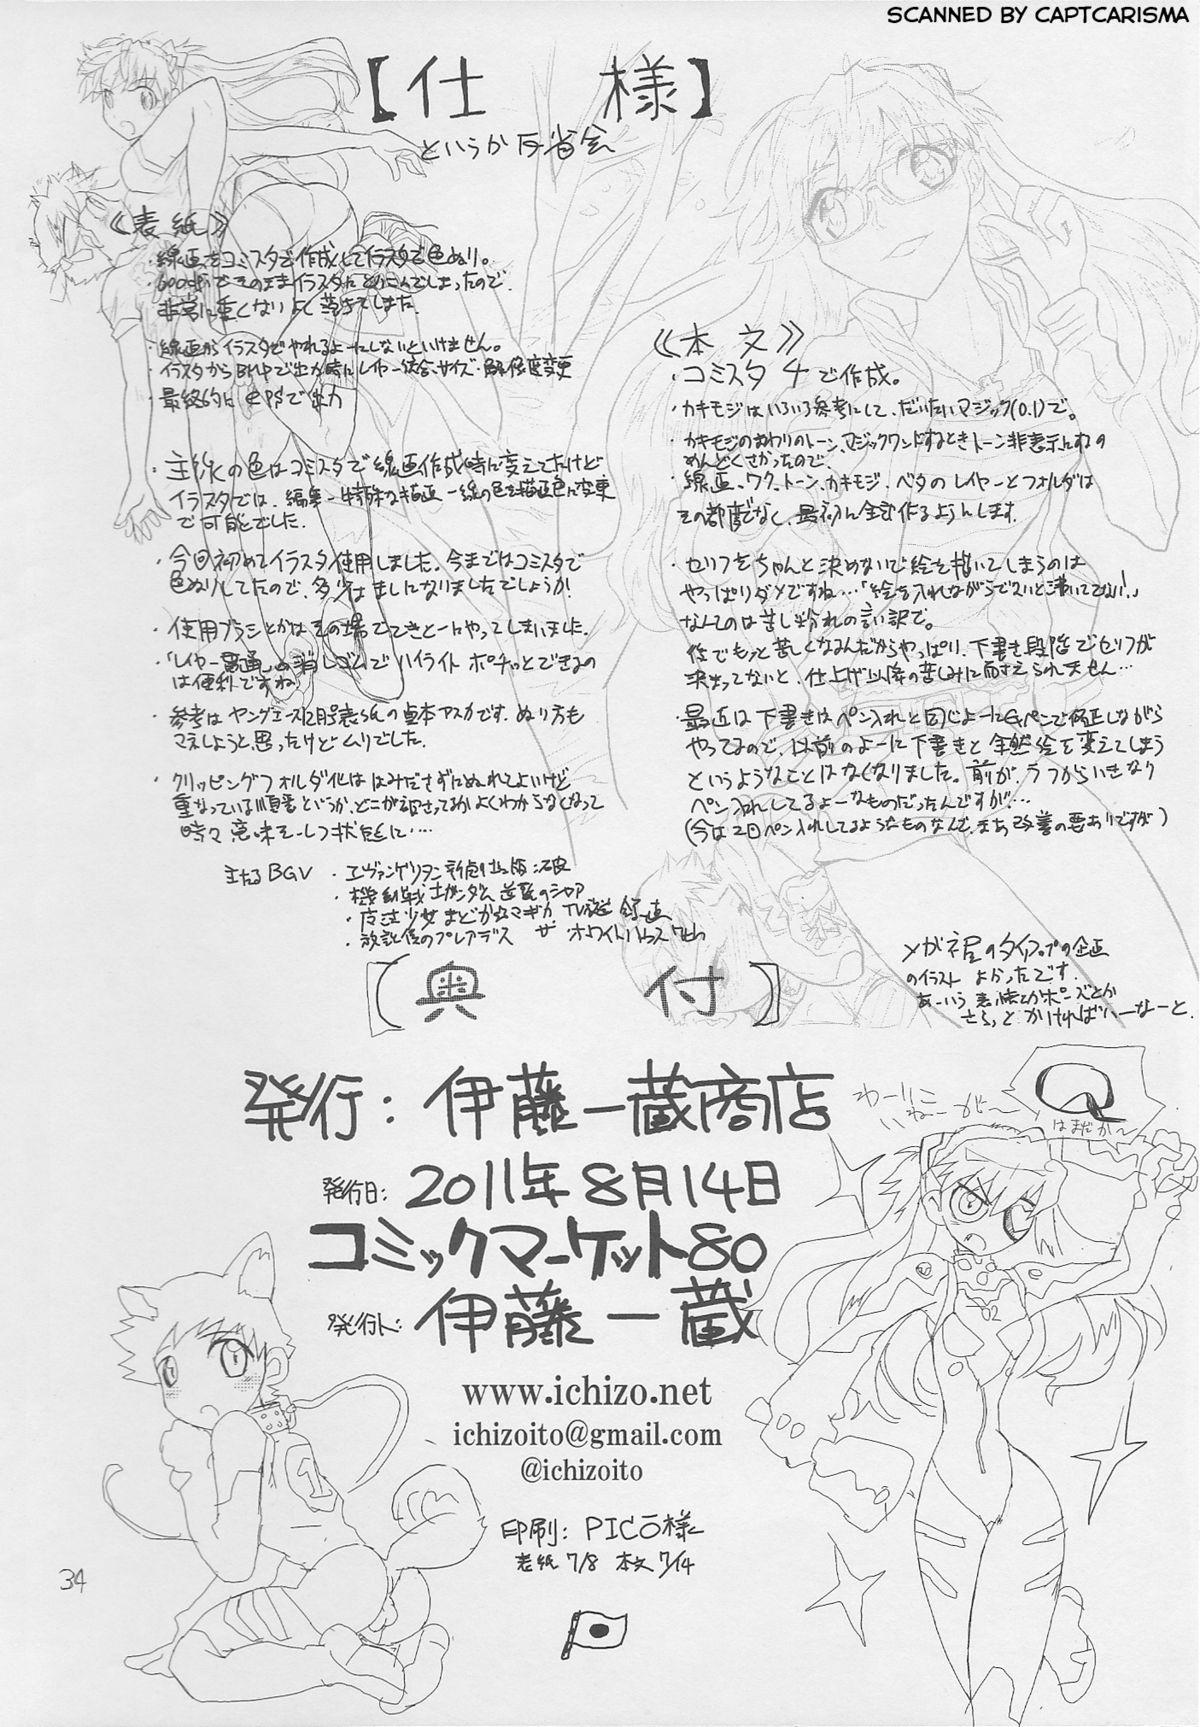 SCANNED BY CAPTCARISMA
【仕 様】
というか反省会
《表紙》
・線画をコミスタで作成してイラスタで色ぬり。
・600dpiでそのままイラスタにとりこんでしまったので、
非常に重くない
・線画からイラスタでやれるよーにしないといけません。
・イラスタからBMPで出す時にレイヤー統合、サイズ・解像度変更
・最終的にEPSで出力
・主線の色はコミスタで線画作成時に変えてたけど、
イラスタでは、編集→特殊な描画→線の色を描画色に変更
で可能でした。
・今回初めてイラスタ使用しました。今まではコミスタで
色ぬりしてたので、多少はましになりましたでしょうか!
・使用ブラシとかはその場でてきとーにやってしまいました。
・「レイヤー貫通」の消しゴムでハイライトポチッとできるの
は便利ですね
・参考はヤングエース 表紙の貞本アスカです。ぬり方も
マネしようと思ったけどムリでした。
・クリッピングフォルダ化は はみださずにぬれてよいけど
重なっている順番というか、どこが ってるかよくわからなくなって
時々意味なしっ状態に‥‥
主たるBGV ・エヴァンゲリヲン新劇場版:破
・機動戦士ガンダム 逆襲のシャア
・魔法少女まどか☆マギカ TV放送
・放課後のプレアデス ザ・ホワイトハウス
《本文》
・コミスタ4で作成。
・カキモジはいろいろ参考にして、だいたいマジック(0.1)で。
・カキモジのまわりのトーン、マジックワンドするときトーン非表示にするの
めんどくさかったので、
・線画、ワク、トーン、カキモジ、ベタのレイヤーとフォルダは
その都度でなく、最初に全部作るようにします。
・セリフをちゃんと決めないで絵を描いてしまうのは
やっぱりダメですね…「絵を入れながらでないと沸いてこない!」
なんてのは苦し紛れの言い訳で。
後でもっと苦しくなるんだからやっぱり、下書き段階でセリフが
決まってないと、仕上げ以降の苦しみに耐えられません…
・最近は下書きはペン入れと同じよーにGペンで修正しながら
やってるので、以前のよーに下書きと全然絵を変えてしまう
というようなことはなくなりました。前が、ラフからいきなり
ペン入れしてるよーなものだったんですが…
(今は2回ペン入れしてるようなものなんで、まだ改善の要ありですが)
メガネ君のタイアップの企画
のイラスト よかったです。
あーいう表情とかポーズとか
さらっとかければいーなーと。
【奥 付】
発行: 伊藤一蔵商店
発行日: 2011年8月14日
コミックマーケット80
発行人: 伊藤一蔵
www.ichizo.net
ichizoito@gmail.com
@ichizoito
印刷: PICO様
表紙7/8 本文7/14
わーりこ
いねーがー
Q
はまだか〜
1
34